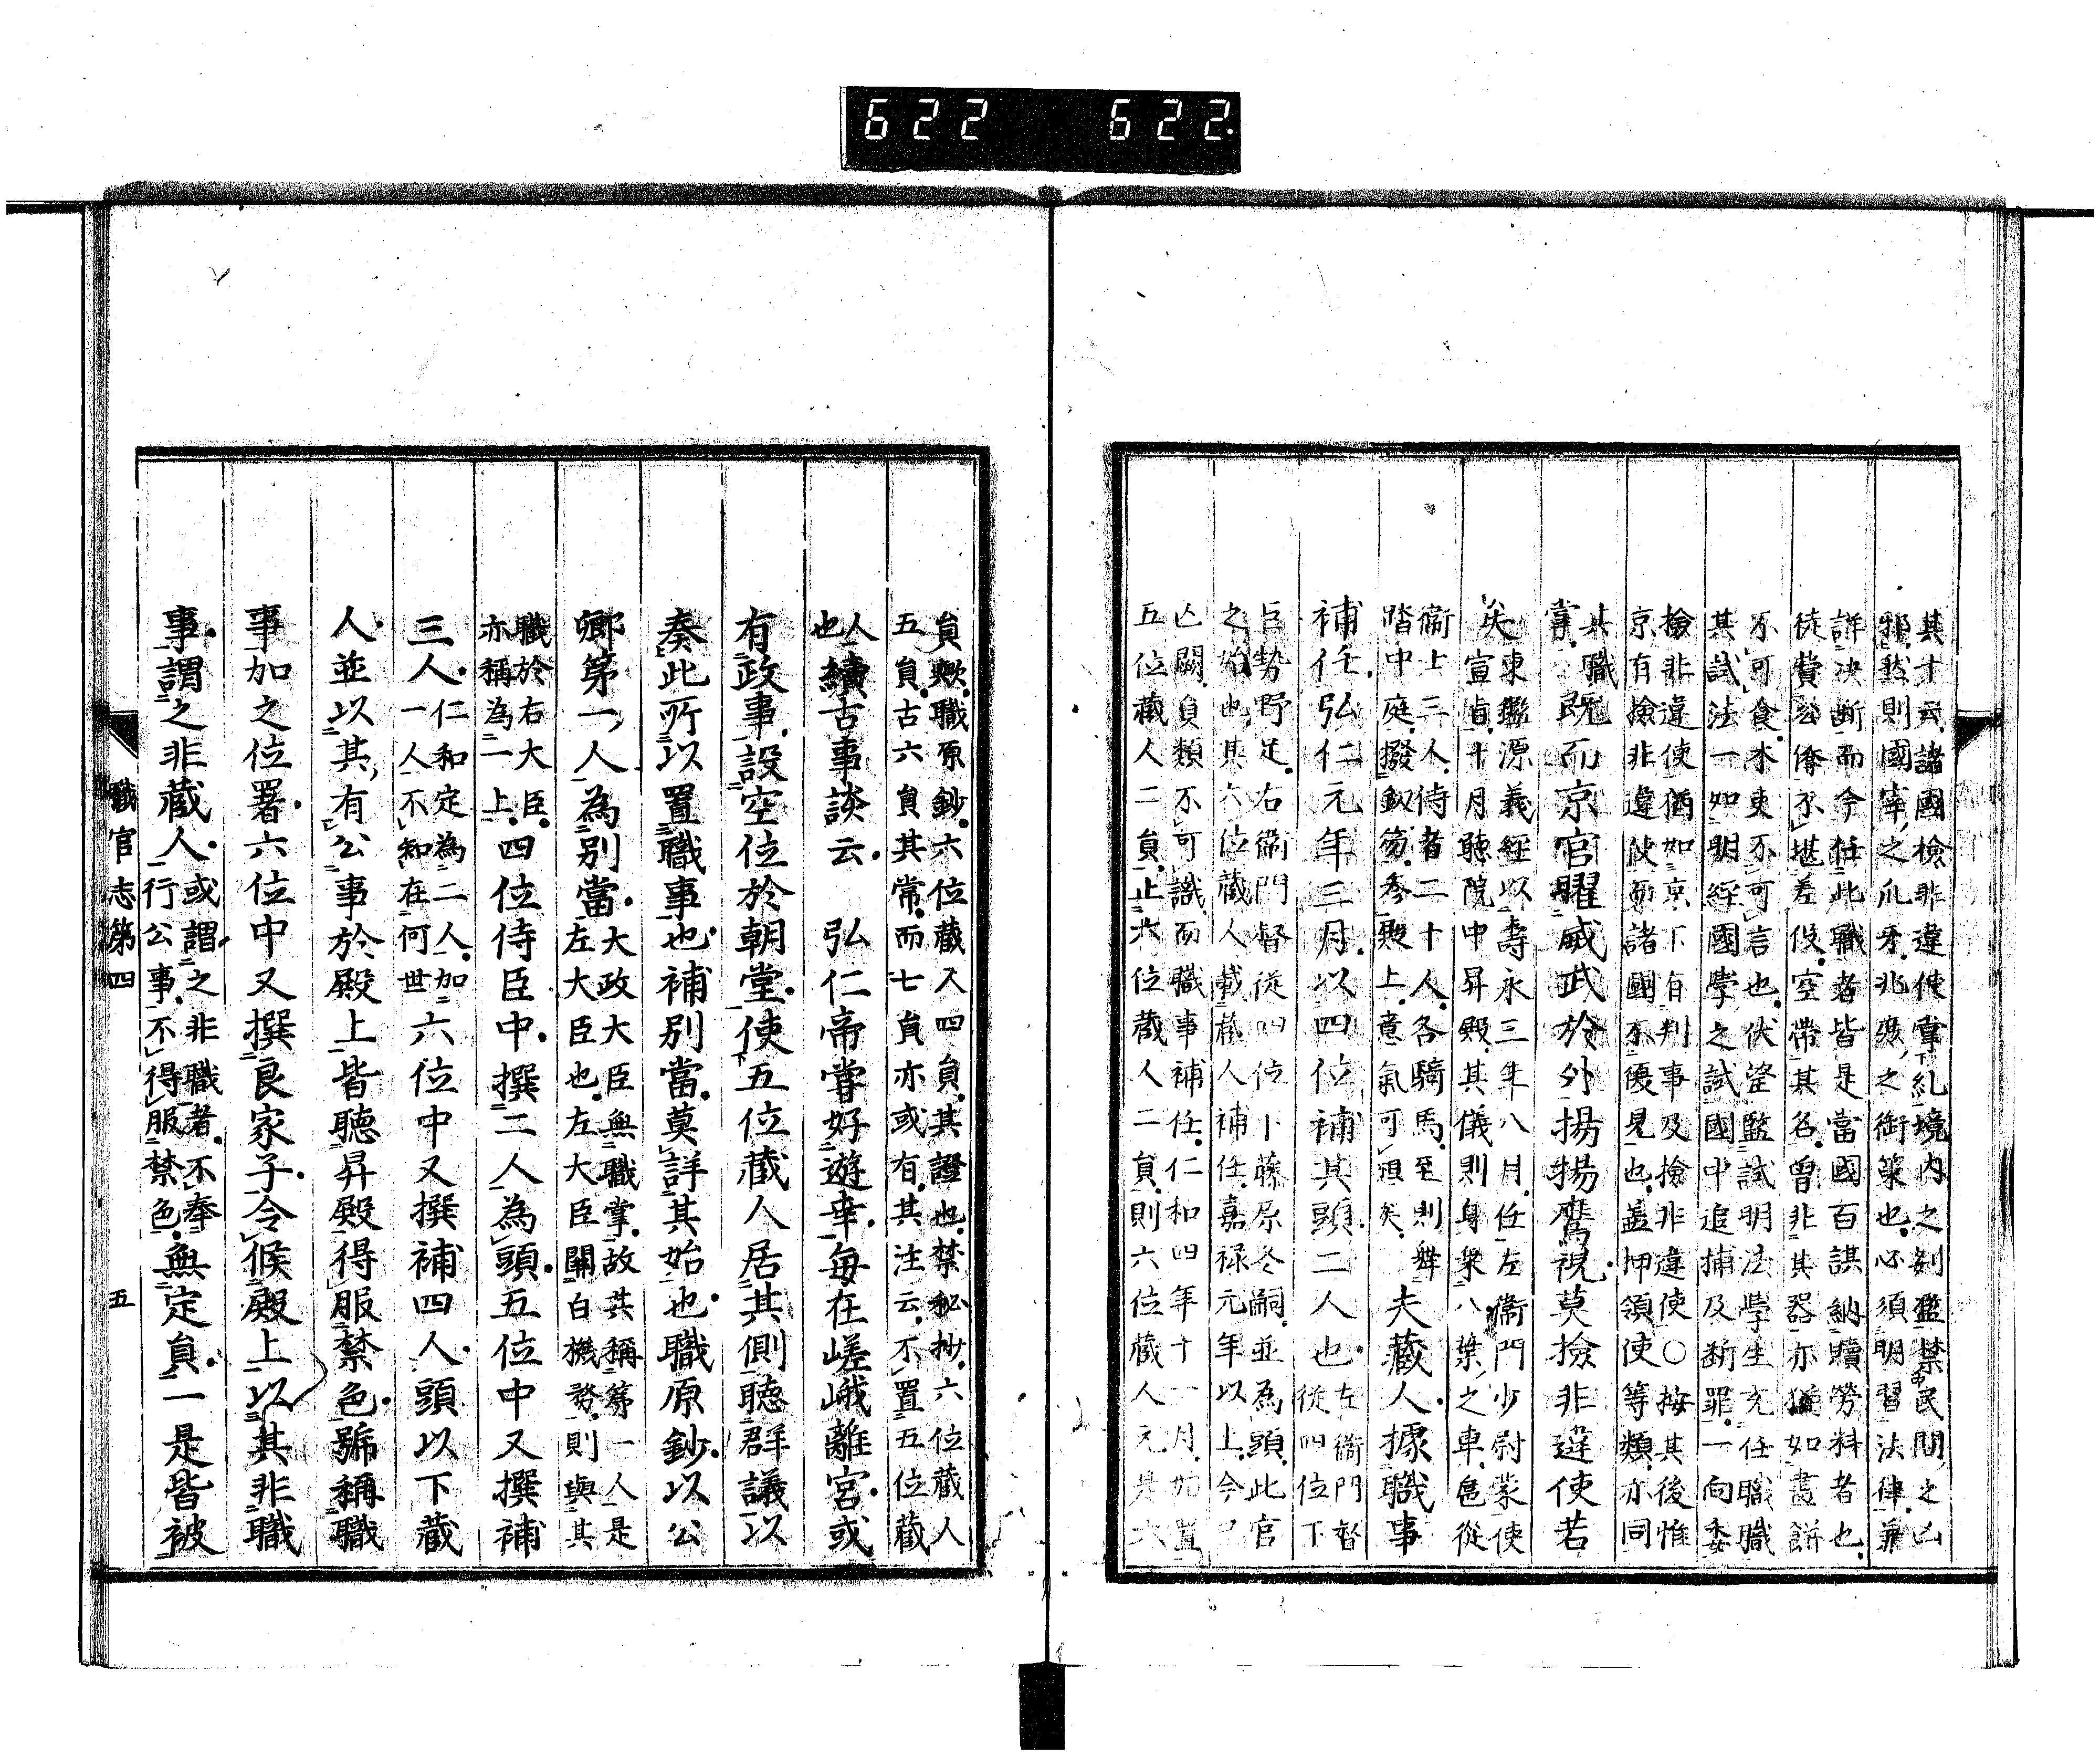 622 622
其十云諸國檢非違使掌糺境内之
邪然則國宰之爪牙兆庶之銜策也必須明習法律兼
詳決斷而今任此職者皆是當國百姓納贖勞料者也
徒費公俸不堪差役空帶其名曾非其器亦猶如畫餅
不可食木吏不可言也伏望監試明法學生充任職
其試法一如明經國學之試國中追捕及斷罪一向委
檢非違使猶如京下有判事及檢非違使○按其後惟
京有檢非違使而諸國不復見也蓋押領使等類亦同
其職
掌既而京官曜威武於外揚揚鷹視莫檢非違使若
矣東鑑源義經以壽永三年八月任左衞門少尉蒙使
宣旨十月聽院中昇殿其儀則身乘八葉之車扈從
衞士三人侍者二十人各騎馬至則舞
踏中庭撥釼笏參殿上意氣可想矣夫藏人據職事
補任弘仁元年三月以四位補其頭二人也左衞門督
從四位下
巨勢野足右衞門督從四位下藤原冬嗣並為頭此官
之始也其六位藏人載藏人補任嘉禄元年以上今已
亡闕員類不可識而職事補任仁和四年十一月始置
五位藏人二員止六位藏人二員則六位藏人元是六
員歟職原鈔六位藏人四員其證也禁秘抄六位藏人
五員古六員其常而七員亦或有其注云不置五位藏
人
也續古事談云弘仁帝嘗好遊幸每在嵯峨離宮或
有政事設空位於朝堂使五位藏人居其側聽群議以
奏此所以置職事也補別當莫詳其始也職原鈔以公
卿第一人為別當大政大臣無職掌故其稱第一人是
左大臣也左大臣關白機務則與其
職於右大臣
亦稱為一上四位侍臣中撰二人為頭五位中又撰補
三人仁和定為二人加
一人不知在何世六位中又撰補四人頭以下藏
人並以其有公事於殿上皆聽昇殿得服禁色號稱職
事加之位署六位中又撰良家子令候殿上以其非職
事謂之非藏人或謂之非職者不奉
行公事不得服禁色無定員一是皆被
職官志第四 五